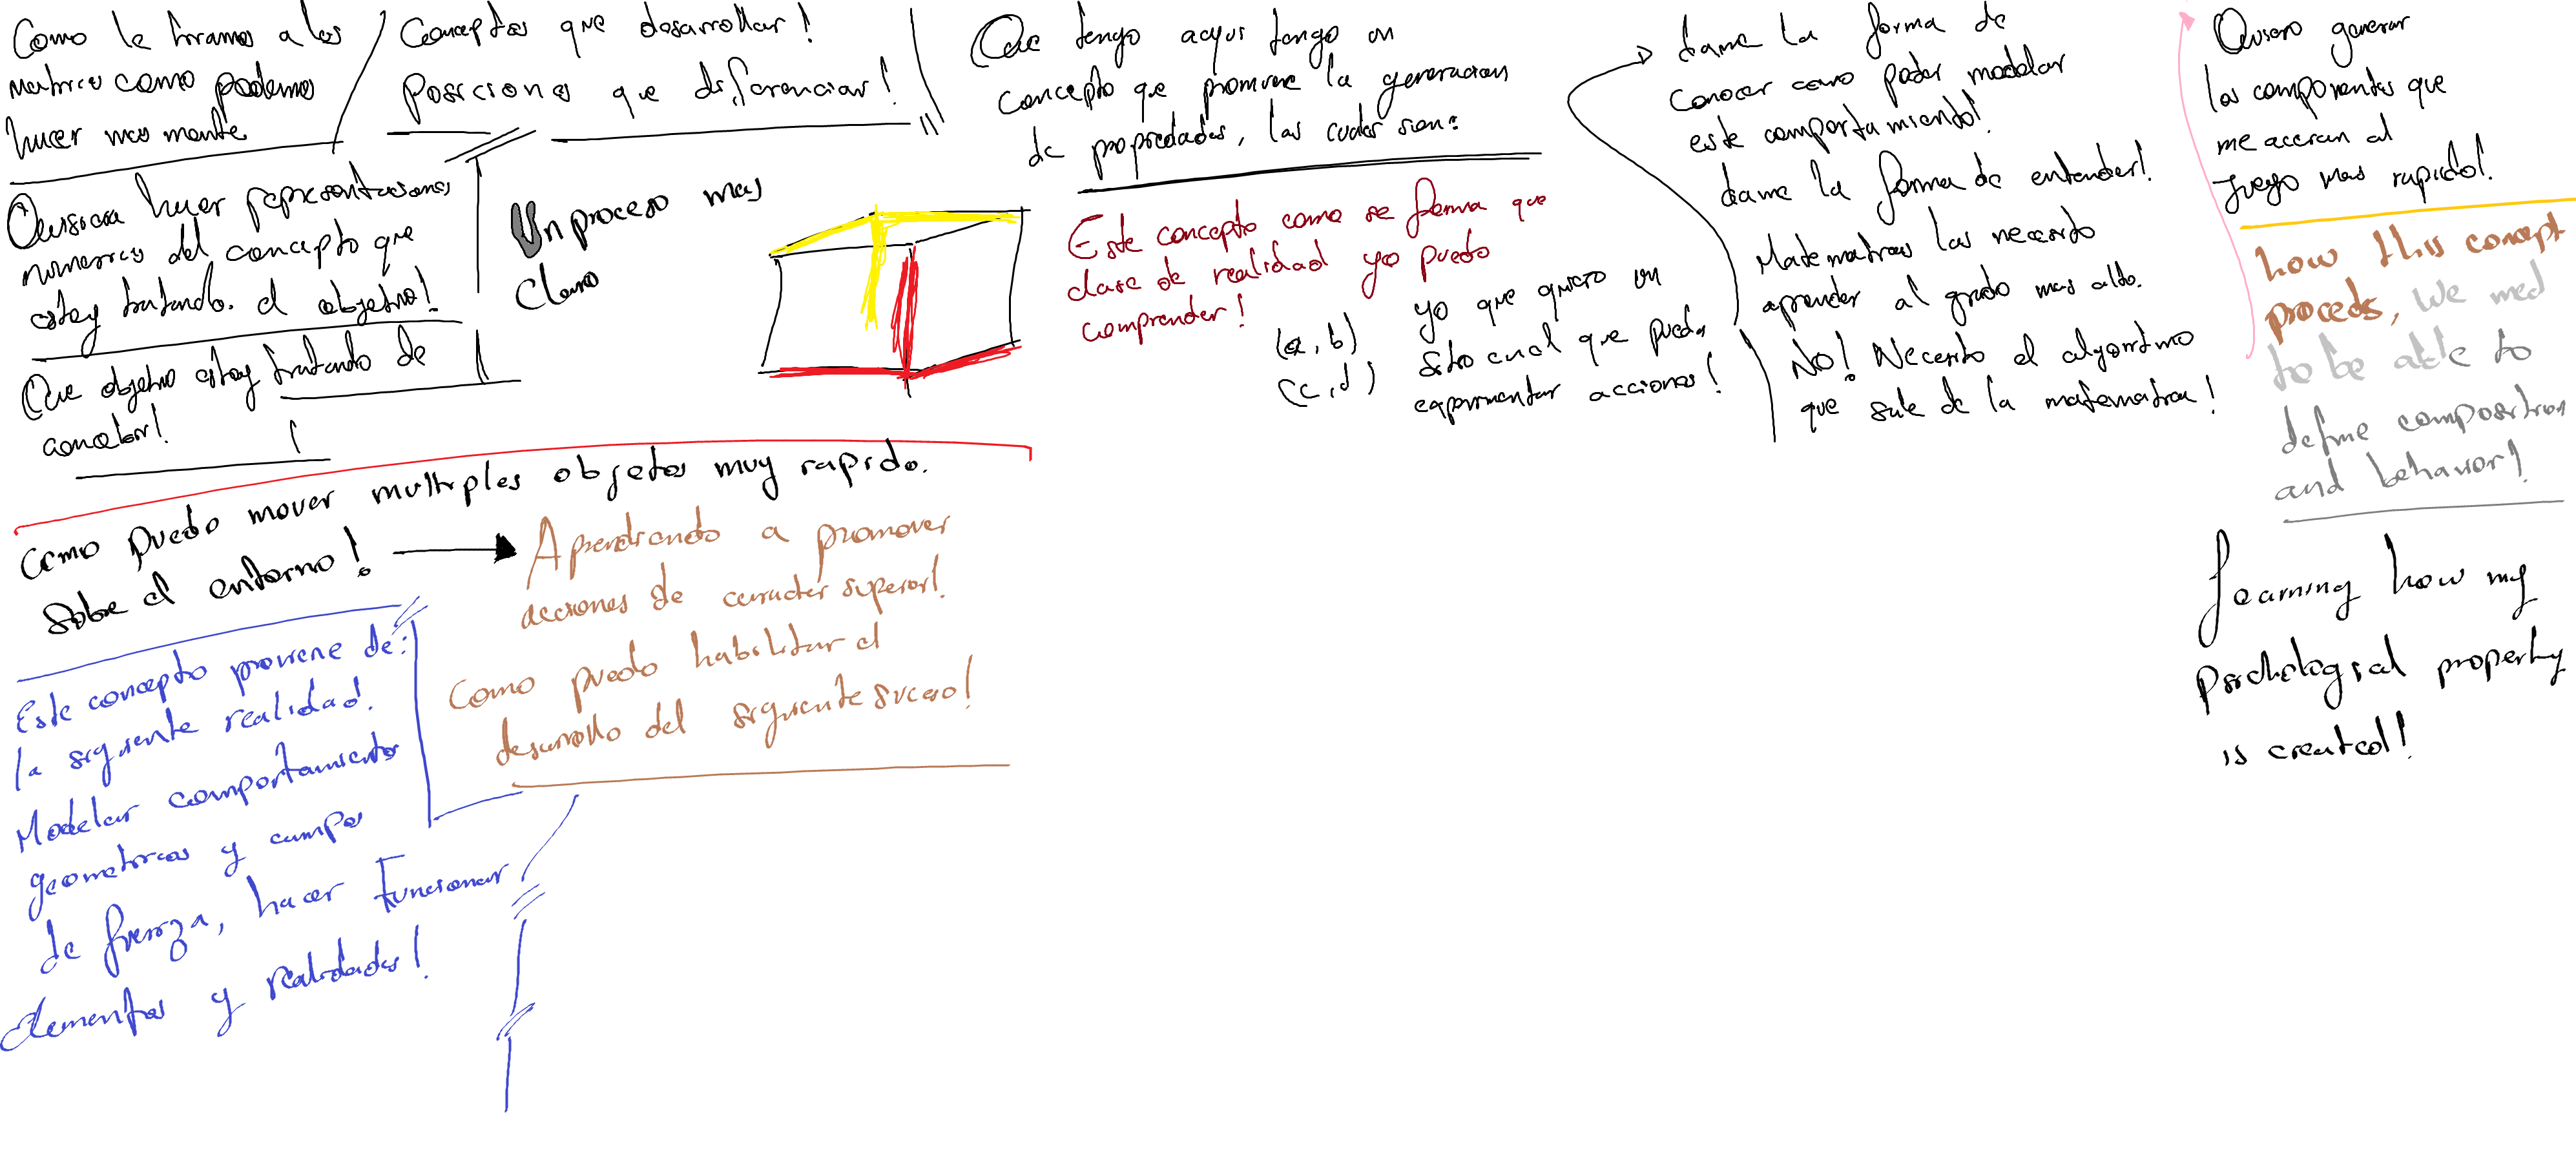 Como le hiramos a les
matrices como podemo
hacer mas mente
Conceptos que desarrollar!
Posiciones que diferenciar!
Quisiera hacer representaciones
numericas del concepto que
estoy tratando. el objetivo!
Que objetivo estoy tratando de
concebir!
Un proceso mas
Claro
Que tengo aqui tengo un
concepto que promueve la generacion
de propiedades, las cuales sien:
Este concepto como se forma que
clase de realidad yo puedo
comprender!
(a, b)
(c, d)
yo que quiero un
sitio cual que pueda
experimentar acciones!
dame la forma de
Conocer como poder modelar
este comportamiento!
dame la forma de entender!
Matematicas las necesito
aprender al grado mas alto.
No! Necesito el algoritmo
que sale de la matematica!
Quiero generar
los componentes que
me acercan al
juego mas rapido!
how this concept
proceds, We need
to be able to
define composition
and behavior!
Learning how my
Psichological property
is created!
Como puedo mover multiples objetos muy rapido.
Sobre el entorno!
Aprendiendo a promover
acciones de caracter superior!
Como puedo habilitar el
desarrollo del siguiente suceso!
Este concepto proviene de:
la siguiente realidad!
Modelar comportamientos
geometricos y campos
de fuerza, hacer Funcionar
elementos y realidades!